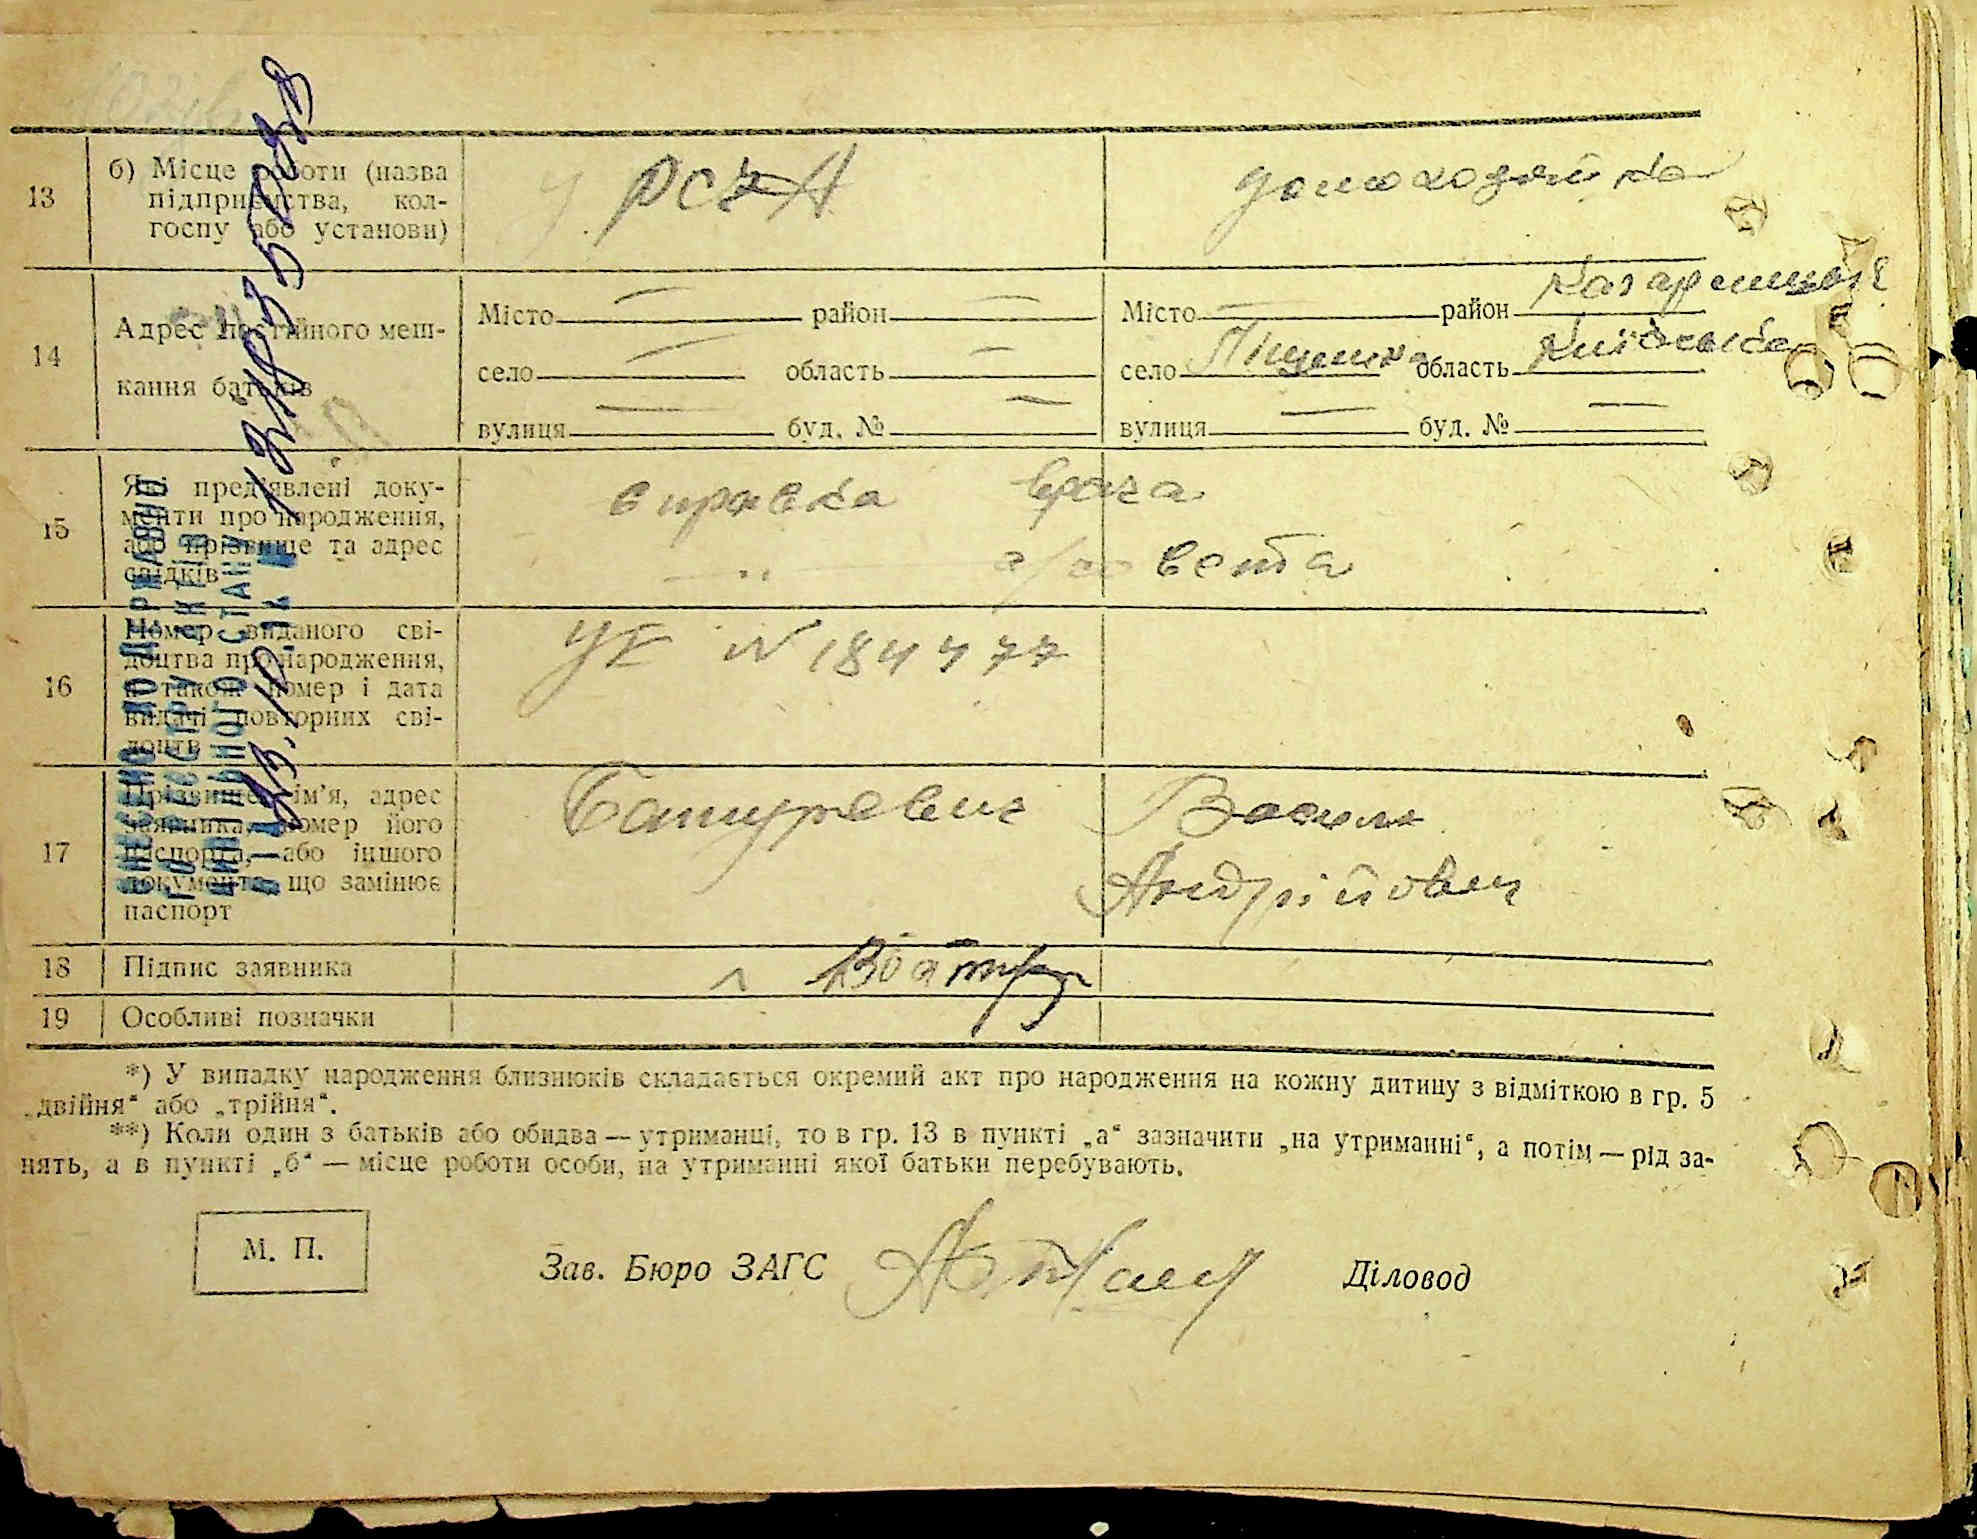 13
б) Місце роботи (назва
підприємства, кол-
госпу або установи)
у РСЧА
домохозяйка
14
Адрес постійного меш-
кання батьків
Місто — район —
село — область —
вулиця — буд. № —
Місто — район Кагарлицький
село область Київська
вулиця — буд. № —
15
Які пред'явлені доку-
менти про народження,
або прізвище та адрес
свідків
справка врача
— „ — с/совета
16
Номер виданого сві-
доцтва про народження,
а також номер і дата
видачі повторних сві-
доцтв
УЕ № 184477
17
Прізвище, ім'я, адрес
заявника, номер його
паспорта, або іншого
документа, що замінює
паспорт
Василь
Андрійович
18
Підпис заявника
19
Особливі позначки
*) У випадку народження близнюків складається окремий акт про народження на кожну дитину з відміткою в гр. 5
„двійня“ або „трійня“.
**) Коли один з батьків або обидва — утриманці, то в гр. 13 в пункті „а“ зазначити „на утриманні“, а потім — рід за-
нять, а в пункті „б“ — місце роботи особи, на утриманні якої батьки перебувають.
М. П.
Зав. Бюро ЗАГС
Діловод
ВНЕСЕНО ДО ДЕРЖАВНО
ГО РЕЄСТРУ АКТІВ
ЦИВІЛЬНОГО СТАНУ
ВІД ЗА №